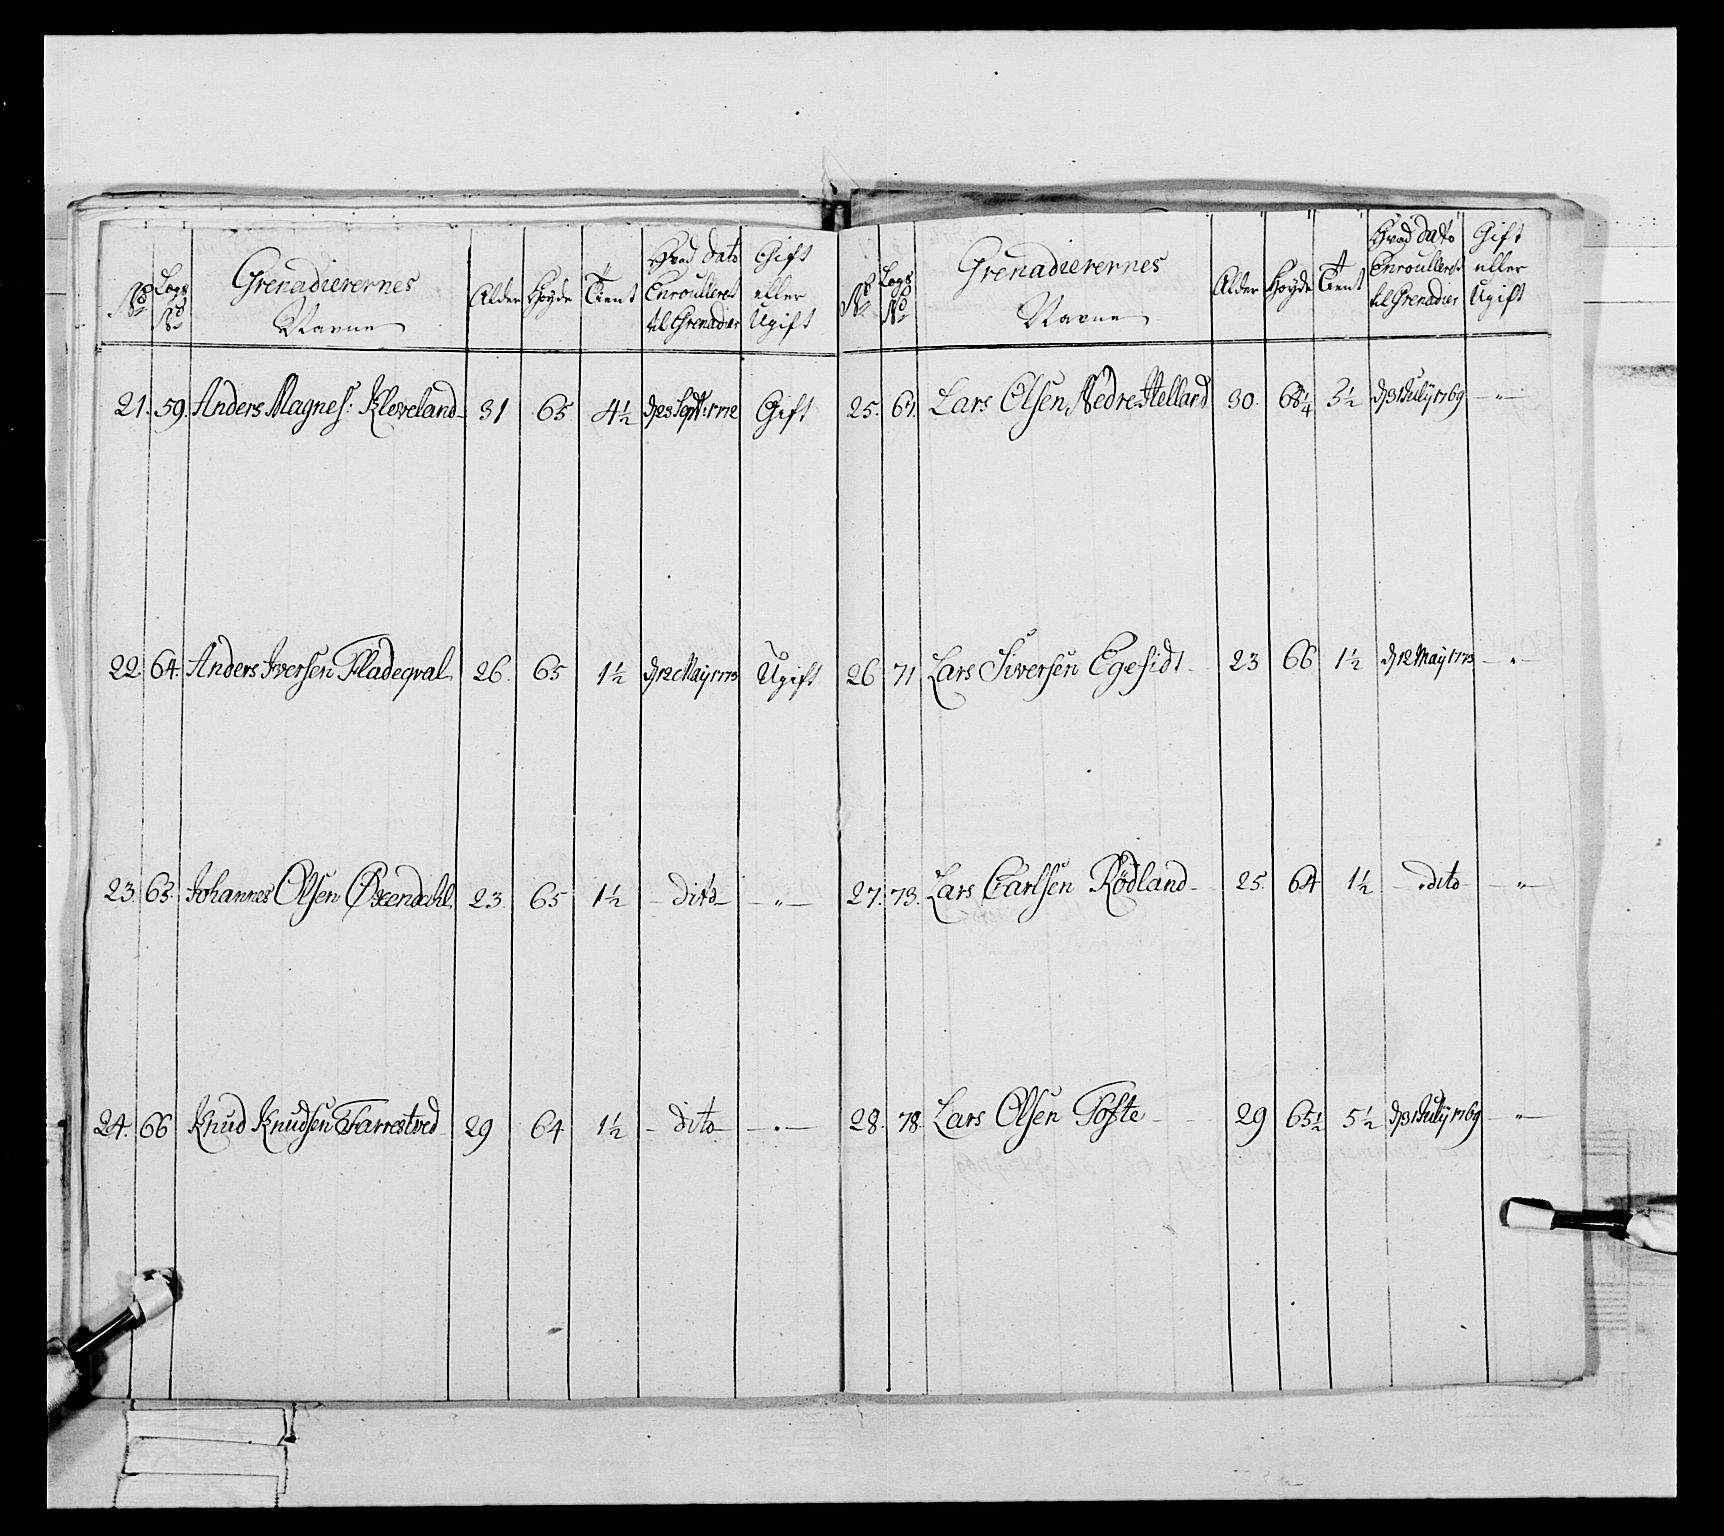 No Logs No Grenadierernes Navne Alder Høyde Tient Hvad dato Enroulleret til Grenadier Gift eller Ugift
21. 59. Anders Magnes: Kleveland 31 65 4½ d 23 Sept: 1772 Gift
22 64. Anders Iversen Fladeqval 26. 65 1½ d 12 Maij 1773 Ugift
23. 65. Johannes Olsen Øxendahl 23. 65 1½ dito — " —
24. 66 Knud Knudsen Farrestved 29 64 1½ dito — " —
No Logs No Grenadierernes Navne Alder Høyde Tient Hvad dato Enroulleret til Grenadier Gift eller Ugift
25. 67. Lars Olsen Nedre Helland 30. 68¼ 5½ d 31 Julij 1769 — " —
26 71 Lars Siversen Egesidt 23 66 1½ d 12 Maij 1773 — " —
27. 73. Lars Carlsen Rødland 25. 64 1½ dito — " —
28. 78. Lars Olsen Tofte 29 65½ 5½ d 31 Julij 1769 — " —